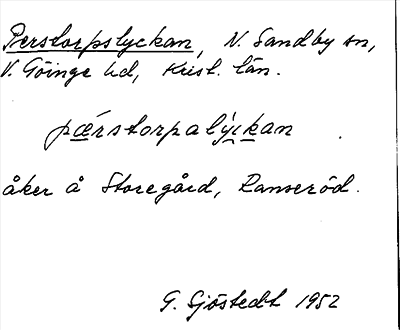 Perstorpslyckan, N. Sandby sn,
V. Göinge hd, Krist. län.
pǽrstorpalýckan.
åker å Storegård, Ranseröd.
G. Sjöstedt 1952